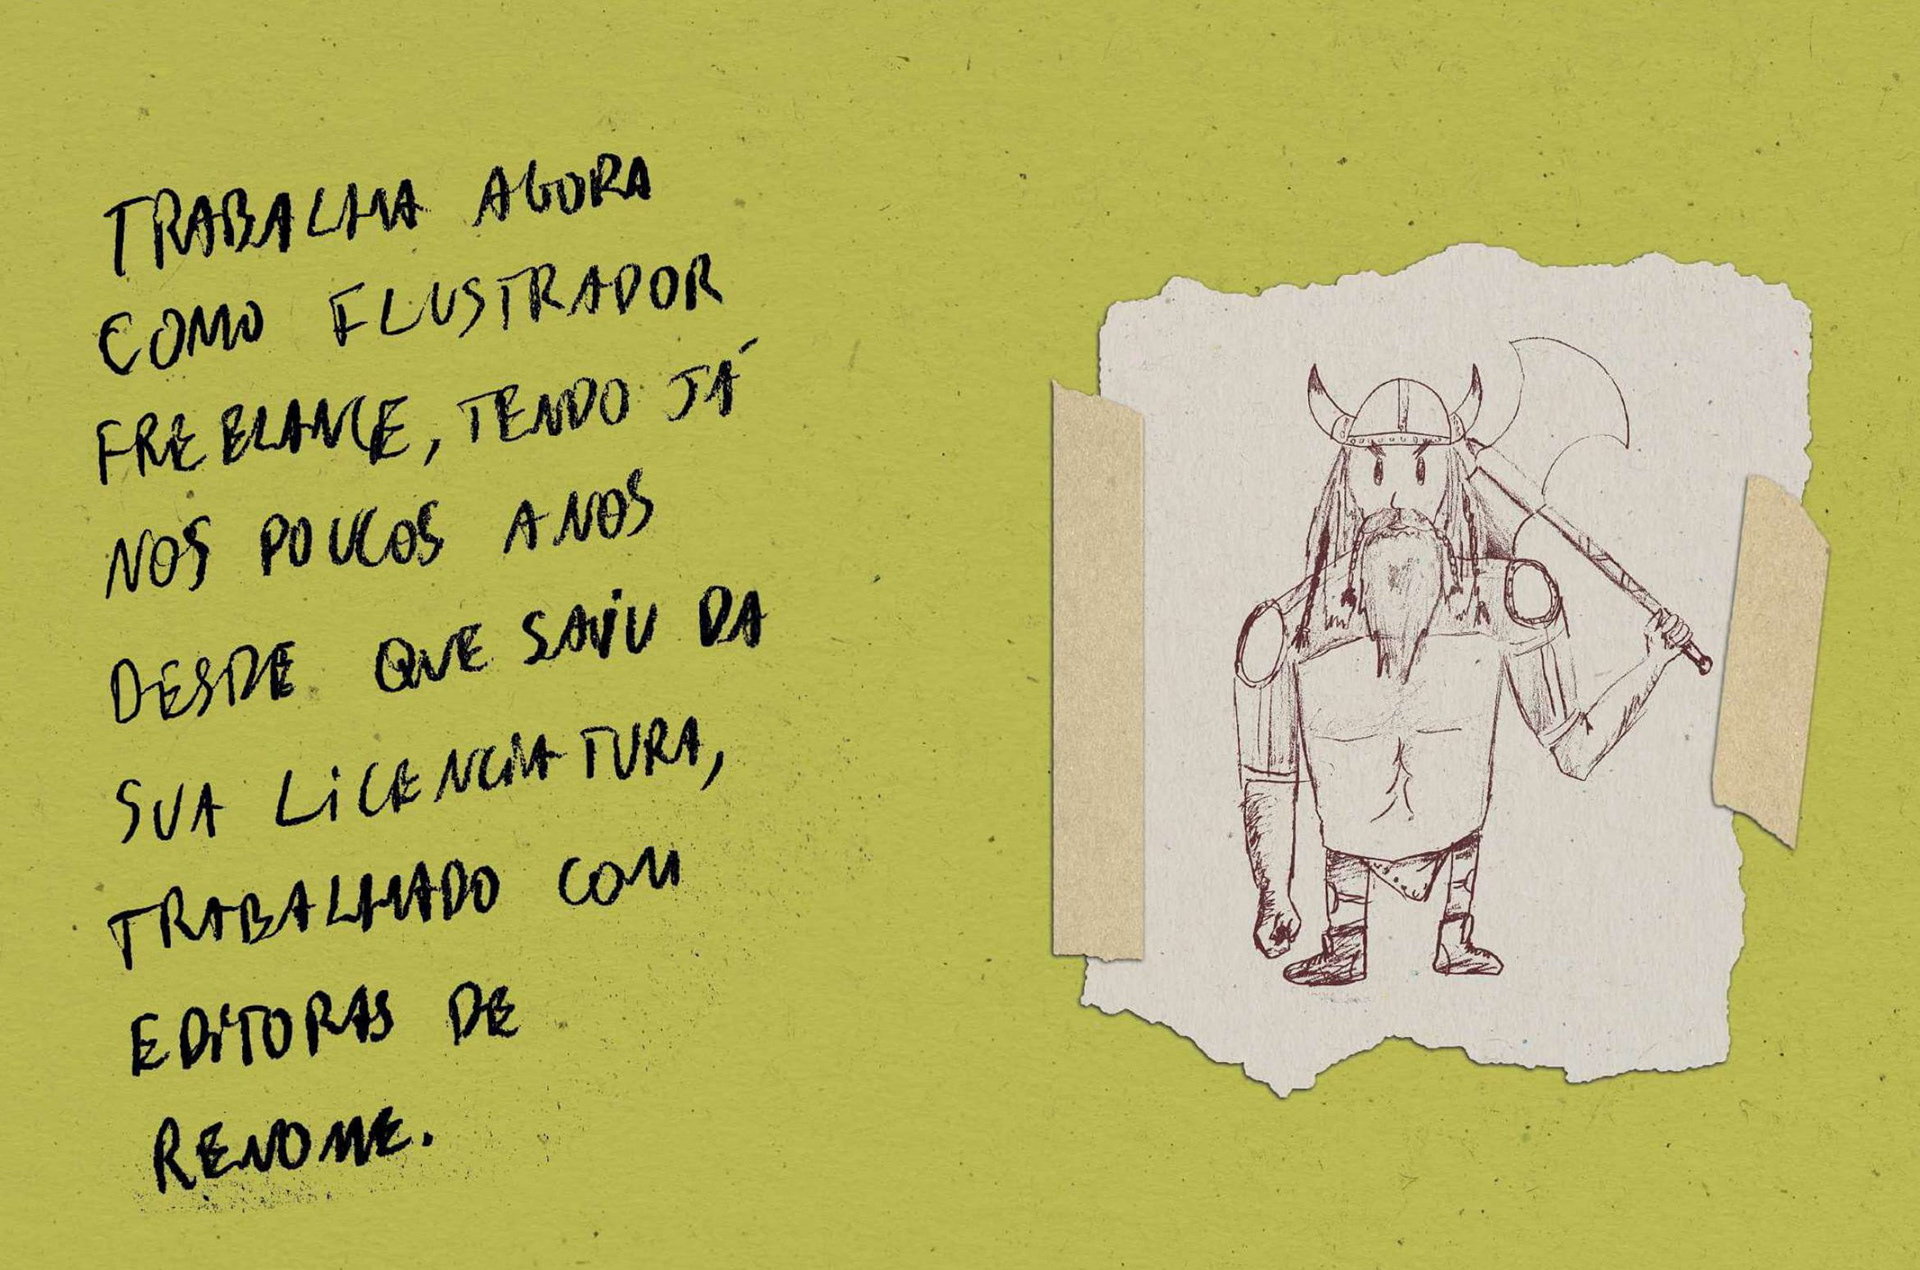 TRABALHA AGORA
COMO ILUSTRADOR
FREELANCE, TENDO JÁ
NOS POUCOS ANOS
DESDE QUE SAIU DA
SUA LICENCIATURA,
TRABALHADO COM
EDITORAS DE
RENOME.